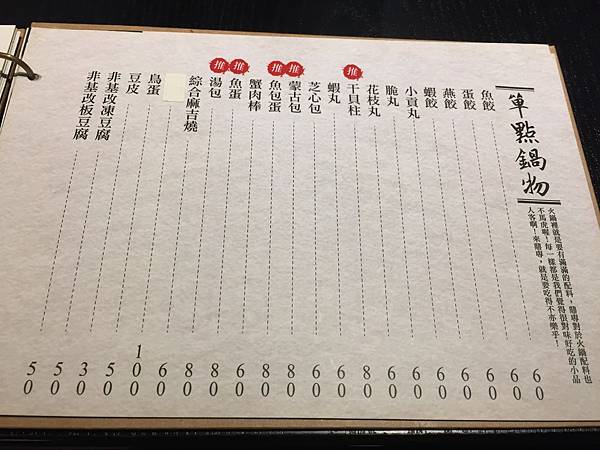 單點鍋物
火鍋裡就是要有滿滿的配料，隨專對於火鍋配料也
不馬虎喔！每一樣都是我們覺得很對味好吃的小品
人客啊！來隨專，就是要吃得不亦樂乎！
魚餃 60
蛋餃 60
燕餃 60
蝦餃 60
小貢丸 60
脆丸 60
花枝丸 60
推 干貝柱 80
蝦丸 60
芝心包 60
推 蒙古包 80
推 魚包蛋 80
蟹肉棒 60
推 魚蛋 80
推 湯包 80
綜合麻吉燒 60
100
鳥蛋 50
豆皮 30
非基改凍豆腐 50
非基改板豆腐 50